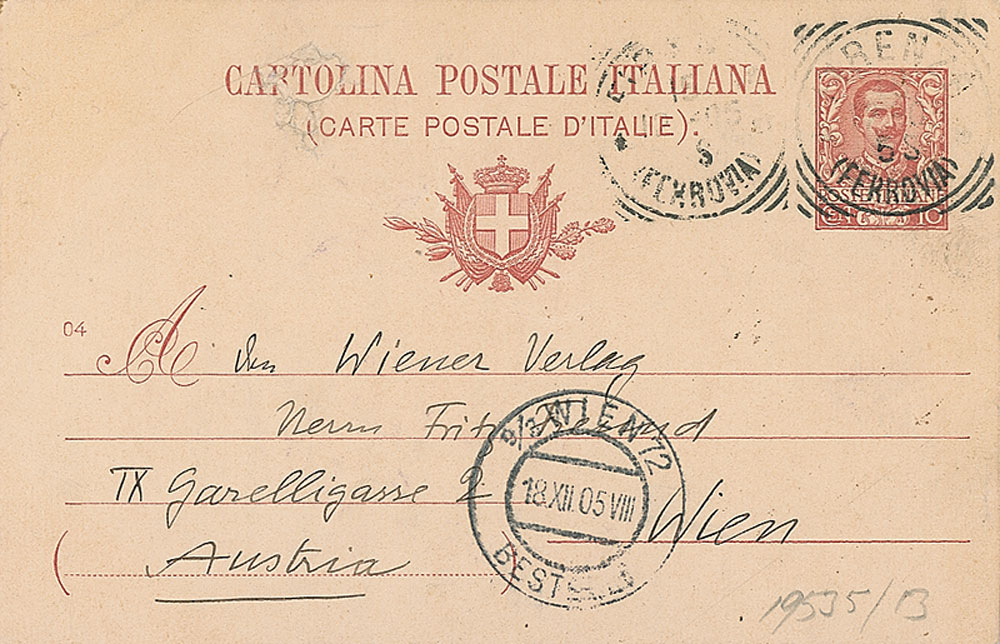 CARTOLINA POSTALE ITALIANA
(CARTE POSTALE D'ITALIE).
(FERROVIA)
05
5
BEN
5 S
(FERROVIA)
POSTE ITALIANE
10
04
A den Wiener Verlag
Herrn Fritz Freund
IX Garelligasse 2 Wien
Austria
9/3 WIEN 72
18.XII.05 VIII
BEST
19535/B